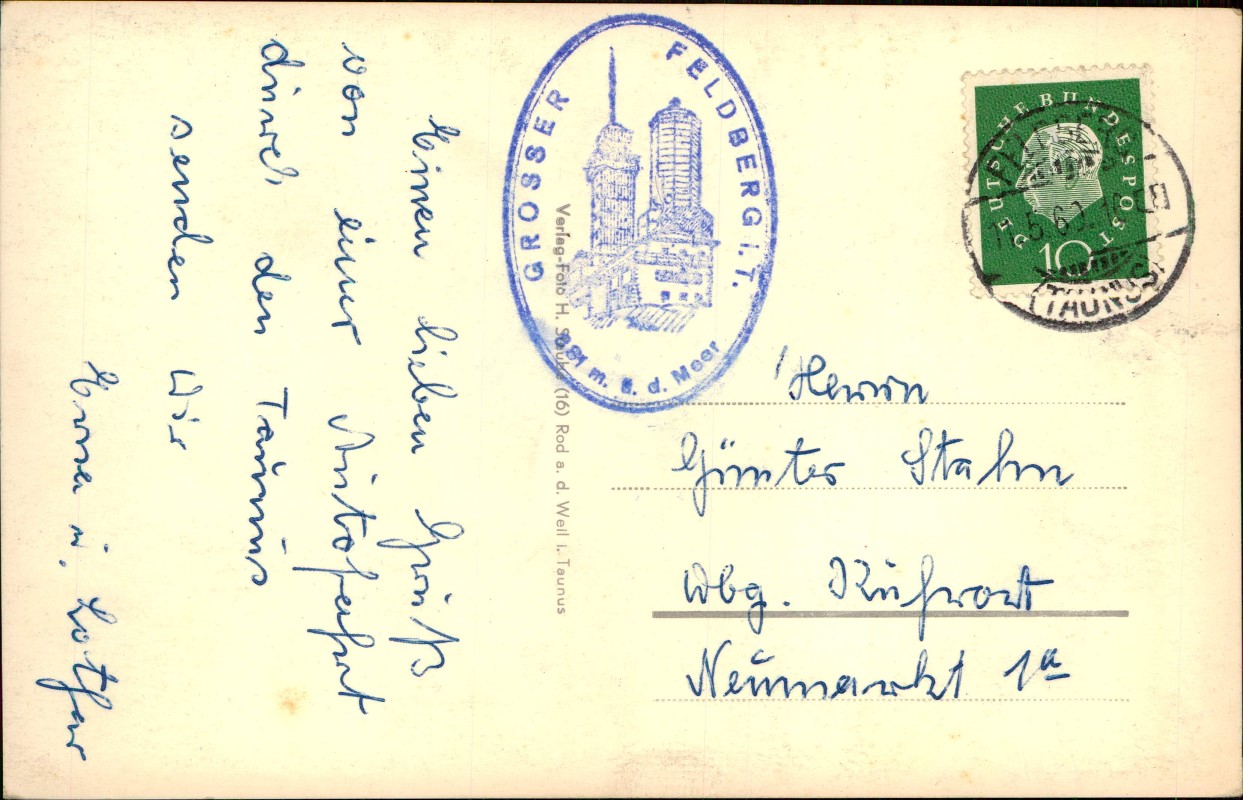 Einen lieben Gruß
von einer Autofahrt
durch den Taunus
senden Wir
Erna u. Lothar
GROSSER FELDBERG i. T.
881 m. ü. d. Meer
Verlag-Foto H. (16) Rod a. d. Weil i. Taunus
DEUTSCHE BUNDESPOST
10
5.60
(TAUNUS)
Herrn
Günter Stahn
Dbg. Ruhrort
Neumarkt 1a